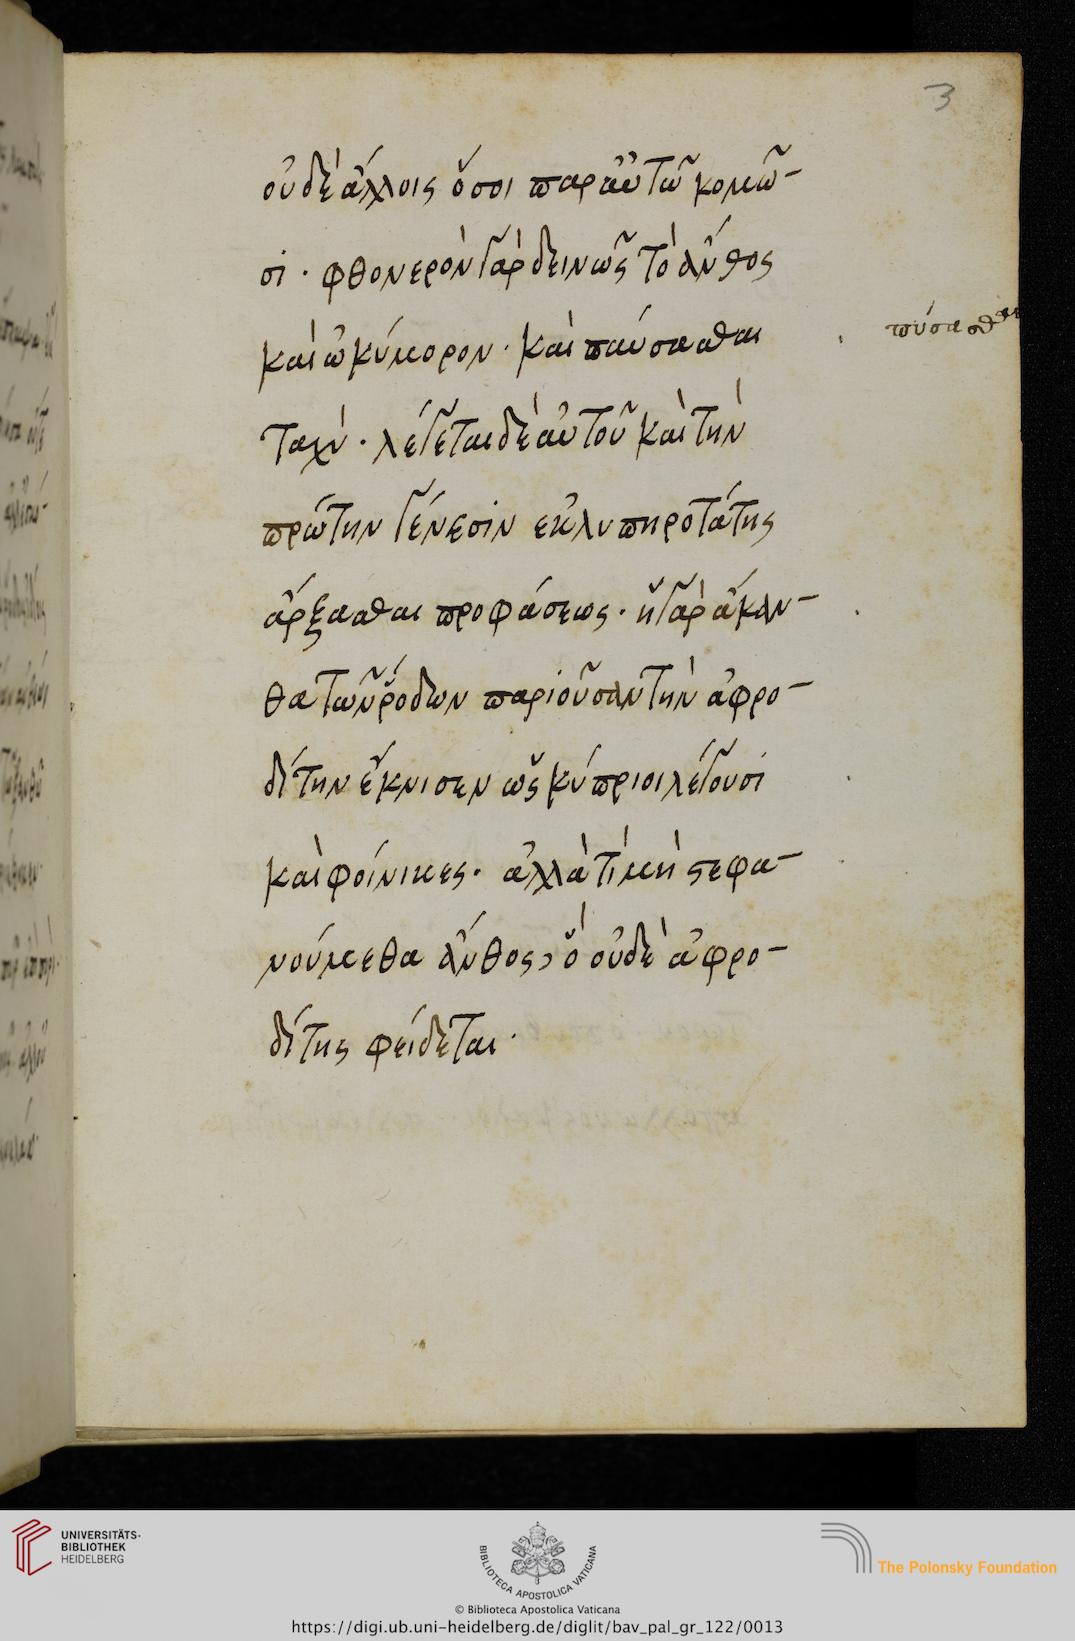 3
οὐδὲ ἄλλοις ὅσοι παρ' αὐτῶ κομῶ-
σι · φθονερὸν γὰρ δεινῶς τὸ ἄνθος
καὶ ὠκύμορον · καὶ παύσασθαι
πύσασθαι
ταχὺ · λέγεται δὲ αὐτοῦ καὶ τὴν
πρώτην γένεσιν ἐκ λυπηροτάτης
ἄρξασθαι προφάσεως · ἡ γὰρ ἄκαν-
θα τῶν ῥόδων παριοῦσαν τὴν ἀφρο-
δίτην ἔκνισεν ὡς κύπριοι λέγουσι
καὶ φοίνικες · ἀλλὰ τί μὴ στεφα-
νούμεθα ἄνθος, ὃ οὐδὲ ἀφρο-
δίτης φείδεται ·
UNIVERSITÄTS-
BIBLIOTHEK
HEIDELBERG
BIBLIOTECA APOSTOLICA VATICANA
The Polonsky Foundation
© Biblioteca Apostolica Vaticana
https://digi.ub.uni-heidelberg.de/diglit/bav_pal_gr_122/0013